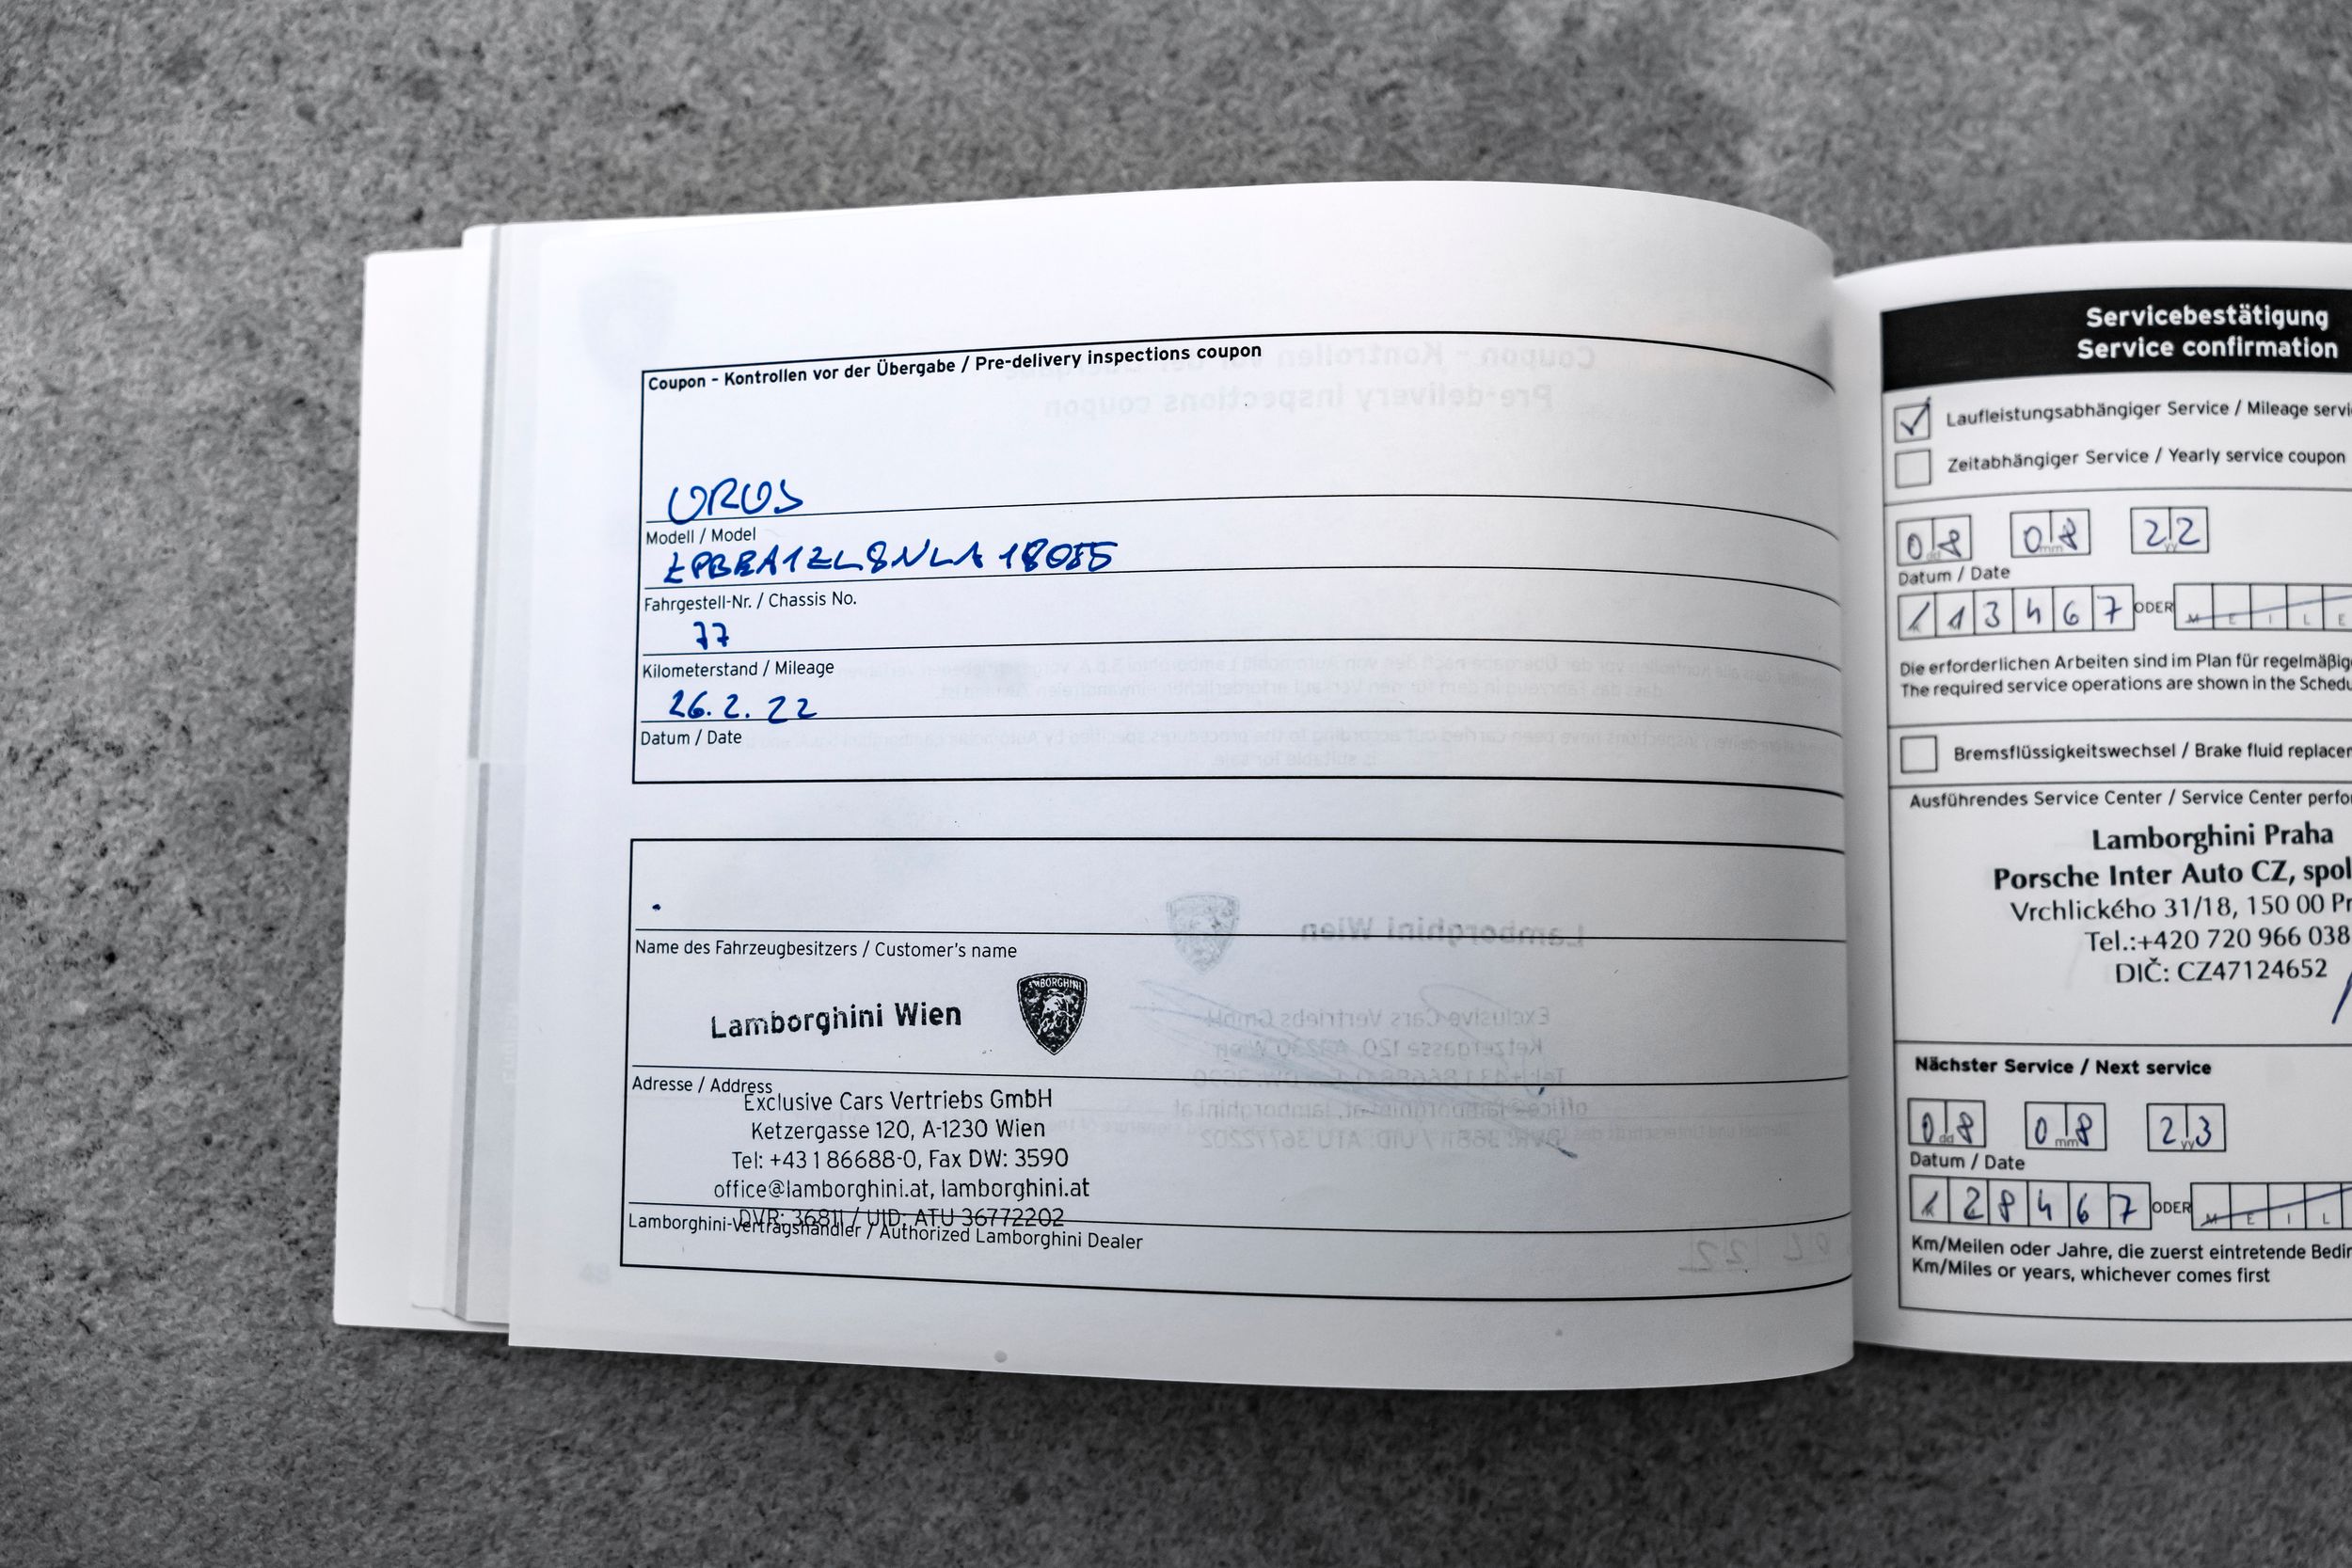 Coupon - Kontrollen vor der Übergabe / Pre-delivery inspections coupon
URUS
Modell / Model
ZPBEA1ZL8NLA18085
Fahrgestell-Nr. / Chassis No.
77
Kilometerstand / Mileage
26.2.22
Datum / Date
Name des Fahrzeugbesitzers / Customer's name
Lamborghini Wien
Adresse / Address
Exclusive Cars Vertriebs GmbH
Ketzergasse 120, A-1230 Wien
Tel: +43 1 86688-0, Fax DW: 3590
office@lamborghini.at, lamborghini.at
DVR: 36811 / UID: ATU 36772202
Lamborghini-Vertragshändler / Authorized Lamborghini Dealer
Servicebestätigung
Service confirmation
Laufleistungsabhängiger Service / Mileage
Zeitabhängiger Service / Yearly service coupon
08 08 22
Datum / Date
/13467 ODER
Die erforderlichen Arbeiten sind im Plan für
The required service operations are shown in the
Bremsflüssigkeitswechsel / Brake fluid
Ausführendes Service Center / Service Center
Lamborghini Praha
Porsche Inter Auto CZ,
Vrchlického 31/18, 150 00
Tel.:+420 720 966 038
DIČ: CZ47124652
Nächster Service / Next service
08 08 23
Datum / Date
28467 ODER
Km/Meilen oder Jahre, die zuerst eintretende
Km/Miles or years, whichever comes first